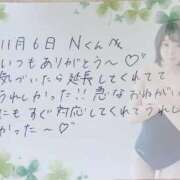 11月6日 Nくんへ
いつもありがとう〜♡
気づいたら延長してくれてて
うれしかった!! 急なおねがい
にもすぐ対応してくれてうれし
かった〜♡